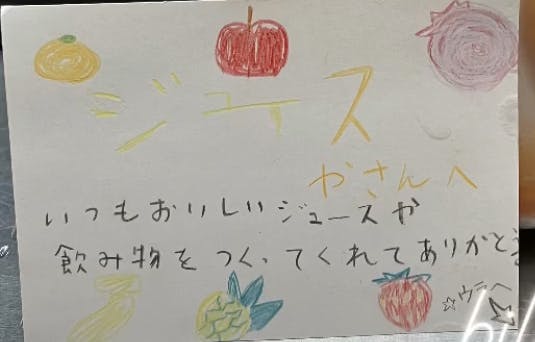 ジュース
やさんへ
いつもおいしいジュースや
飲み物をつくってくれてありがとう
☆ウラへ